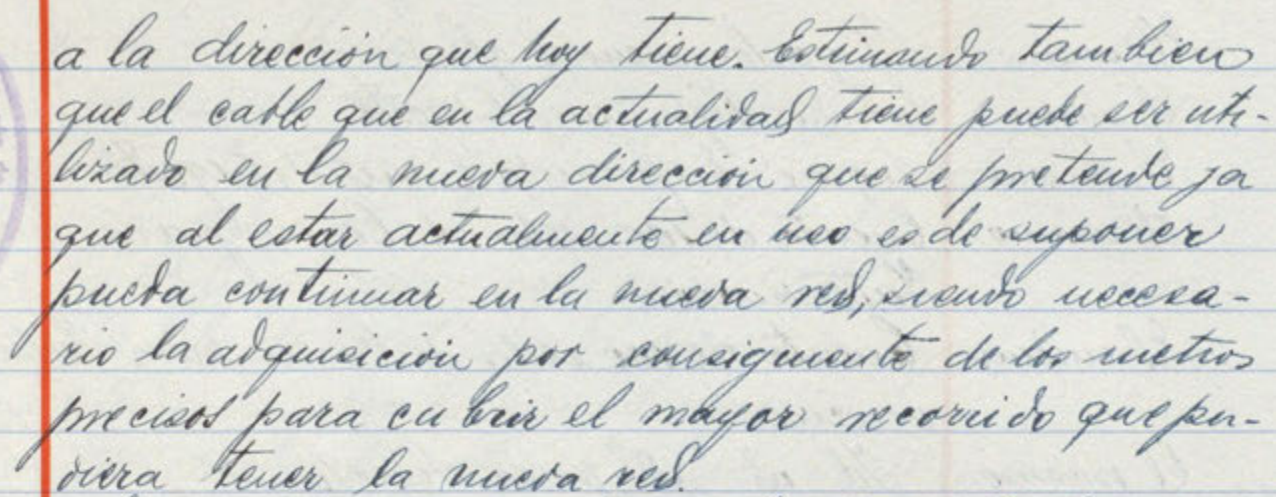 a la dirección que hoy tiene. Estimando tambien
que el cable que en la actualidad tiene puede ser uti-
lizado en la nueva dirección que se pretende ya
que al estar actualmente en uso es de suponer
pueda continuar en la nueva red, siendo necesa-
rio la adquisición por consiguiente de los metros
precisos para cubrir el mayor recorrido que pu-
diera tener la nueva red.